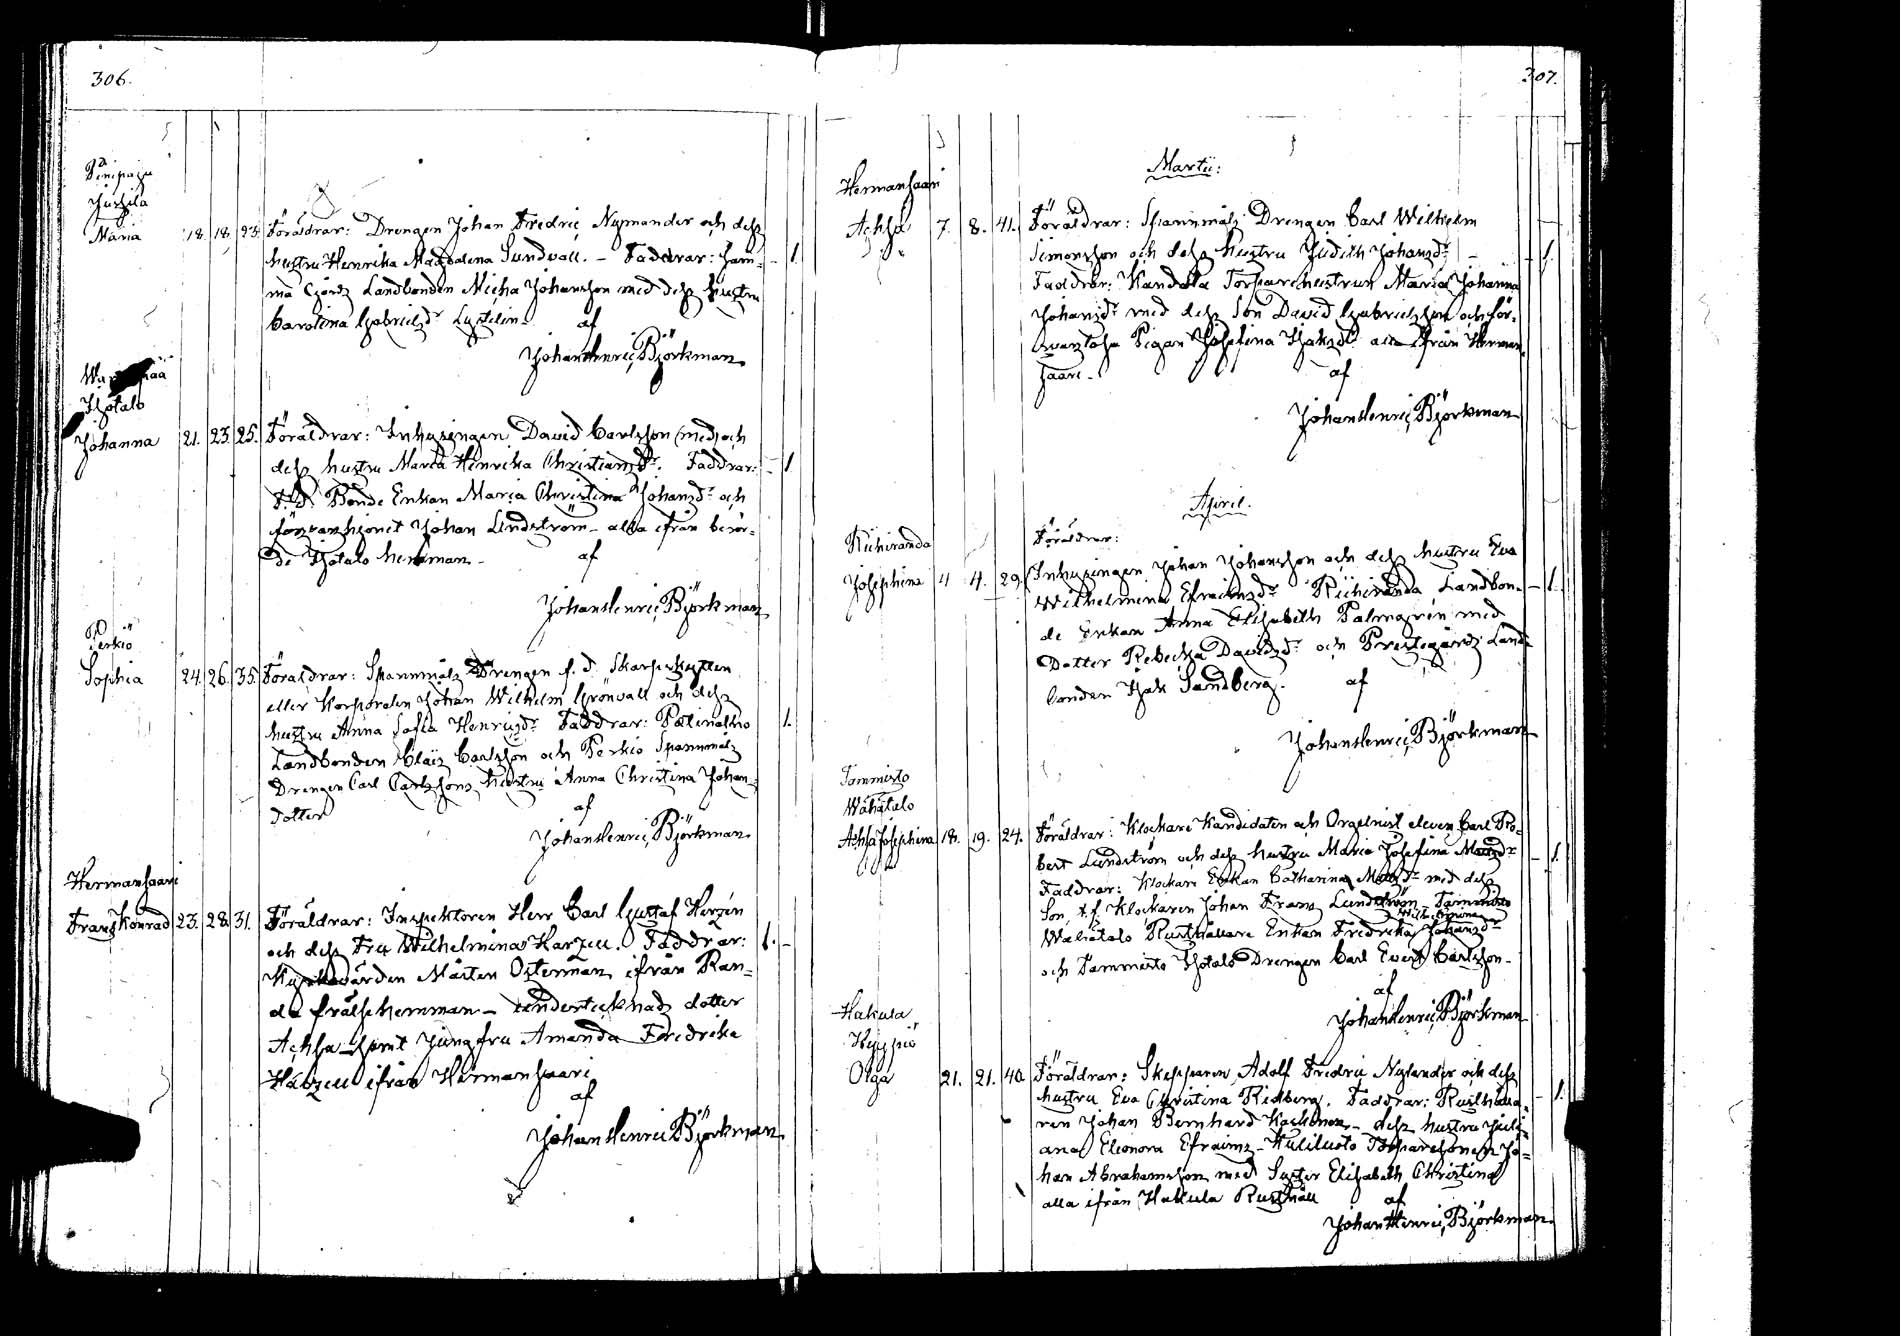 306.
Jussila
Maria 18. 18. 23. Föräldrar: Drengen Johan Fredric Nymander och dess
hustru Henrika Magdalena Sundvall. – Faddrar: sam- – 1.
ma Landbonden Micha Johansson med dess hustru
Carolina Gabrielsdr af
Johan Henric Björkman
Isotalo
Johanna 21. 23. 25. Föräldrar: Inhysingen David Carlsson (med) och
dess hustru Maria Henrika Christiansdr. Faddrar: – 1.
Bonde Enkan Maria Christina Johansdr och
Johan Lindström – alla ifrån berör-
de Isotalo hemman – af
Johan Henric Björkman
Perkiö
Sophia 24. 26. 35. Föräldrar: Spannmåls Drengen f. d. Skarpskytten
eller Korporalen Johan Wilhelm Grönvall och dess
hustru Anna Sofia Henricsdr Faddrar: 1.
Landbonden Claës Carlsson och Perkiö Spannmåls
Drengen Carl Carlssons hustru Anna Christina Johans
dotter af
Johan Henric Björkman
Hermansaari
Frans Konrad 23. 28. 31. Föräldrar: Inspektoren Herr Carl Gustaf Herzén
och dess Fru Wilhelmina Harzell. Faddrar: 1. –
Kyrkovärden Mårten Österman, ifrån Ran-
da frälsehemman – undertecknads dotter
Achsa samt Jungfru Amanda Fredrika
Harzell ifrån Hermansaari
af
Johan Henric Björkman
307.
Martii:
Hermansaari
Achsa 7. 8. 41. Föräldrar: Spannmåls Drengen Carl Wilhelm
Simonsson och dess hustru Judith Johansdr – – 1.
Faddrar: Torpare hustrun Maria Johanna
Johansdr med dess Son David Gabrielsson och för-
Pigan Josefina Isaksdr alla ifrån Herman-
saari – af
Johan Henric Björkman
April.
Riihiranda Föräldrar:
Josephina 4 4. 29. Inhysingen Johan Johansson och dess hustru Eva
Wilhelmina Efraimsdr Riihiranda Landbon- – 1.
de Enkan Anna Elisabeth Palmgrén med
Dotter Rebecka Davidsdr och Prestegårds Land-
bonden Isak Sandberg. af
Johan Henric Björkman
Tammisto
Wähätalo
Achsa Josephina 18. 19. 24. Föräldrar: Klockare Kandidaten och Orgelnist eleven Carl Ro-
bert Lundström och dess hustru Maria Josefina – 1.
Faddrar: Klockare Enkan Catharina med dess
Son, t. f. Klockaren Johan Frans Lundström – Tammisto
Wilhelmina
Wähätalo Rusthållare Enkan Fredrika Johansdr
och Tammisto Isotalo Drengen Carl Evert Carlsson –
af
Johan Henric Björkman
Hakula
Olga 21. 21. 40. Föräldrar: Skepparen Adolf Fredric Nylander och dess
hustru Eva Christina Ridberg. Faddrar: Rusthålla- – 1.
ren Johan Bernhard – dess hustru Juli-
ana Eleonora Efraims – Torparesonen Jo-
han Abrahamsson med Syster Elisabeth Christina
alla ifrån Hakula Rusthåll af
Johan Henric Björkman